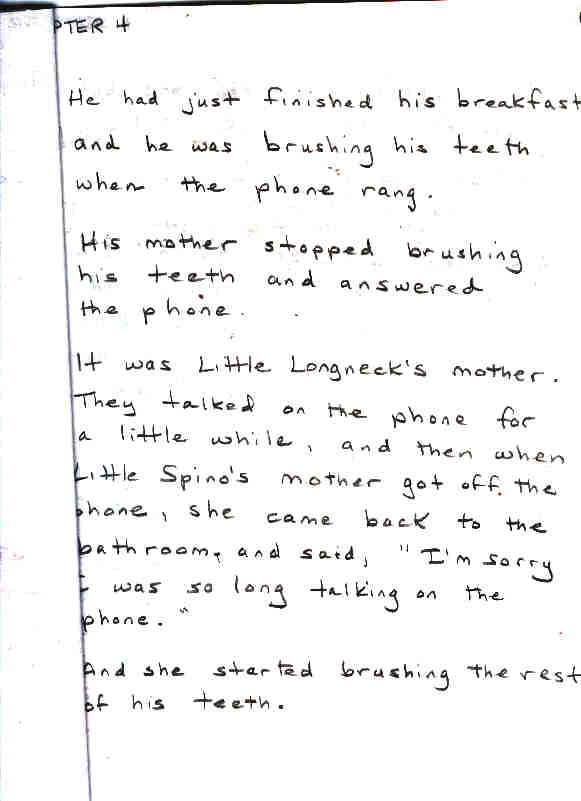 PTER 4
He had just finished his breakfast
and he was brushing his teeth
when the phone rang.
His mother stopped brushing
his teeth and answered
the phone.
It was Little Longneck's mother.
They talked on the phone for
a little while, and then when
Little Spino's mother got off the
phone, she came back to the
bathroom, and said, "I'm sorry
I was so long talking on the
phone."
And she started brushing the rest
of his teeth.